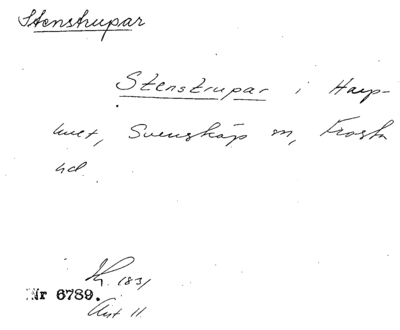 Stenstrupar
Stenstrupar i Harp-
hult, Svensköp sn, Frosta
hd.
1831
Nr 6789.
Avt 11